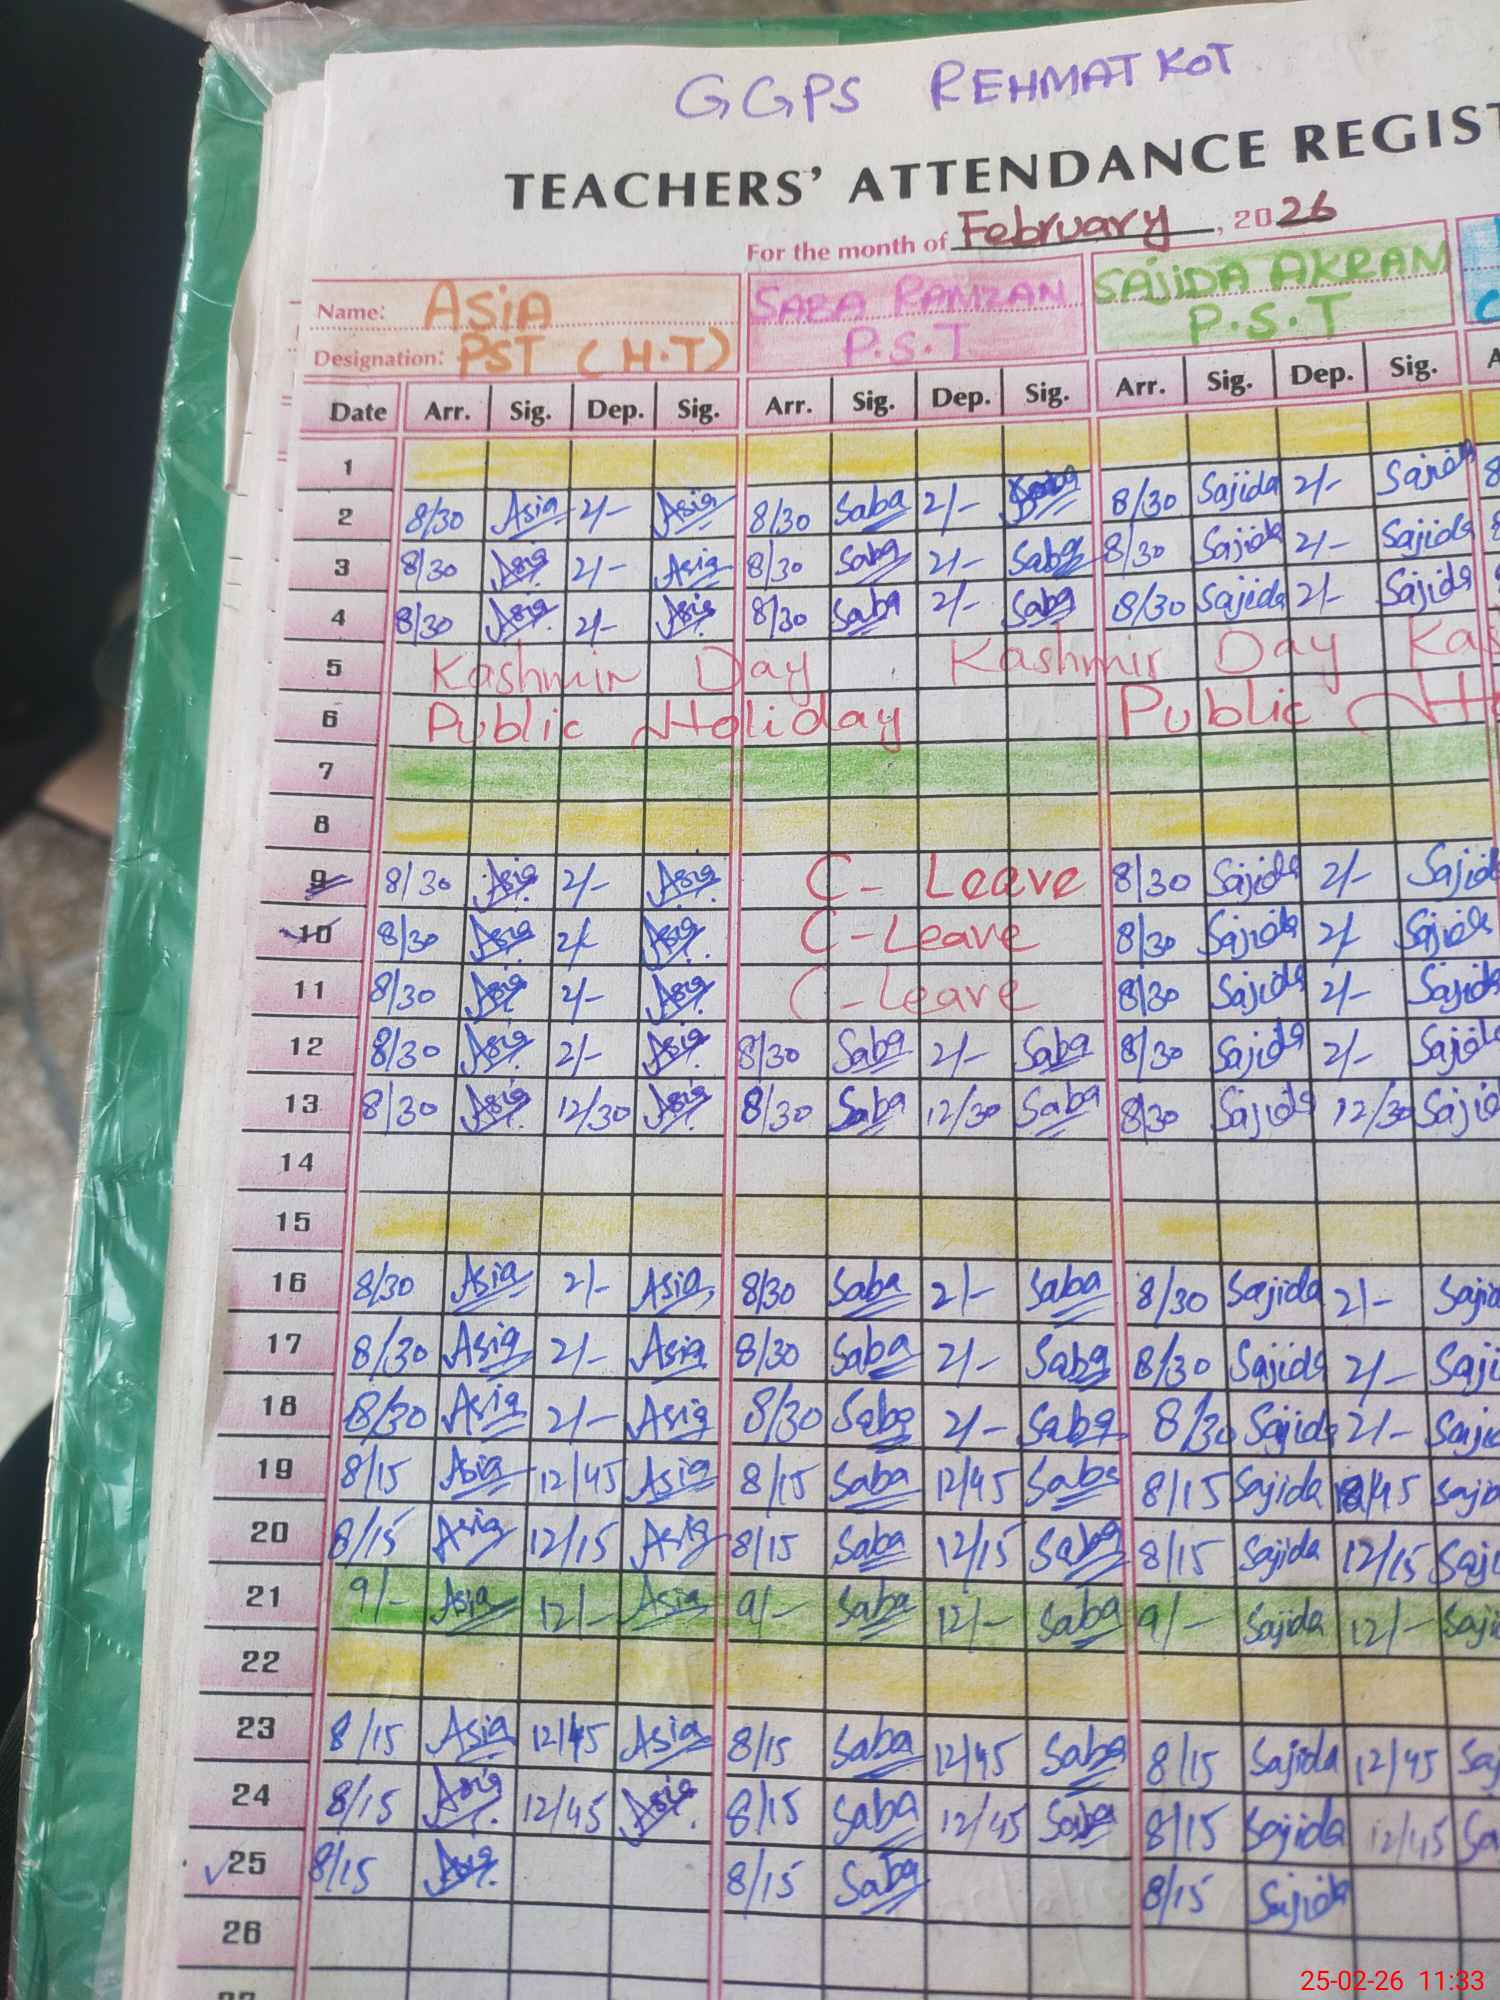 GGPS REHMAT KOT
TEACHERS' ATTENDANCE REGIST
For the month of February, 2026
Name: ASIA SABA RAMZAN SAJIDA AKRAM
Designation: PST (H.T) P.S.T P.S.T
Date Arr. Sig. Dep. Sig. Arr. Sig. Dep. Sig. Arr. Sig. Dep. Sig. A
1
2 8/30 Asia 2/- Asia 8/30 Saba 2/- Saba 8/30 Sajida 2/- Sajida
3 8/30 Asia 2/- Asia 8/30 Saba 2/- Saba 8/30 Sajida 2/- Sajida
4 8/30 Asia 2/- Asia 8/30 Saba 2/- Saba 8/30 Sajida 2/- Sajida
5 Kashmir Day Kashmir Day Kas
6 Public Holiday Public Ho
7
8
9 8/30 Asia 2/- Asia C- Leave 8/30 Sajida 2/- Sajid
10 8/30 Asia 2/- Asia C-Leave 8/30 Sajida 2/- Sajida
11 8/30 Asia 2/- Asia C-Leave 8/30 Sajida 2/- Sajida
12 8/30 Asia 2/- Asia 8/30 Saba 2/- Saba 8/30 Sajida 2/- Sajida
13 8/30 Asia 12/30 Asia 8/30 Saba 12/30 Saba 8/30 Sajida 12/30 Sajid
14
15
16 8/30 Asia 2/- Asia 8/30 Saba 2/- Saba 8/30 Sajida 2/- Sajid
17 8/30 Asia 2/- Asia 8/30 Saba 2/- Saba 8/30 Sajida 2/- Saji
18 8/30 Asia 2/- Asia 8/30 Saba 2/- Saba 8/30 Sajida 2/- Saji
19 8/15 Asia 12/45 Asia 8/15 Saba 12/45 Saba 8/15 Sajida 12/45 Saji
20 8/15 Asia 12/15 Asia 8/15 Saba 12/15 Saba 8/15 Sajida 12/15 Saji
21 9/- Asia 12/- Asia 9/- Saba 12/- Saba 9/- Sajida 12/- Saji
22
23 8/15 Asia 12/45 Asia 8/15 Saba 12/45 Saba 8/15 Sajida 12/45 Saj
24 8/15 Asia 12/45 Asia 8/15 Saba 12/45 Saba 8/15 Sajida 12/45 Sa
25 8/15 Asia 8/15 Saba 8/15 Sajida
26
25-02-26 11:33